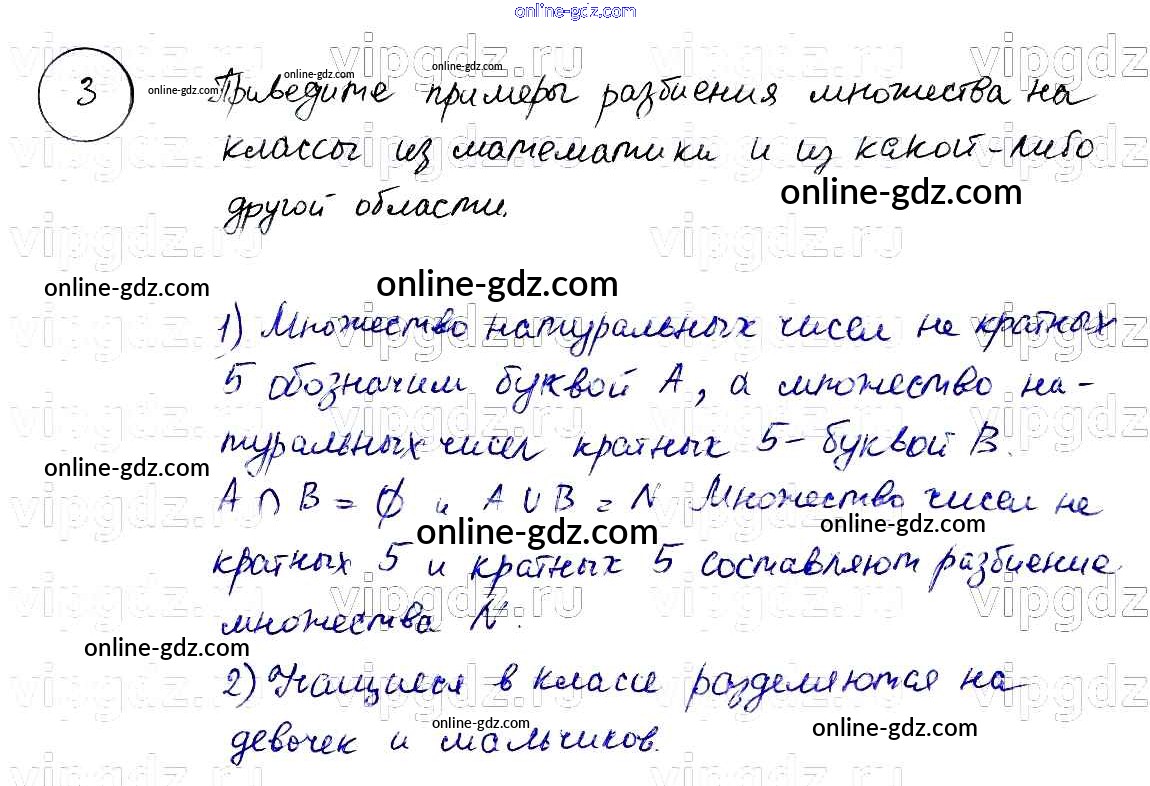 online-gdz.com
3
Приведите примеры разбиения множества на
классы из математики и из какой-либо
другой области.
1) Множество натуральных чисел не кратных
5 обозначим буквой А, а множество на-
туральных чисел кратных 5 - буквой В.
А ∩ В = ∅ и А ∪ В = N. Множество чисел не
кратных 5 и кратных 5 составляют разбиение
множества N.
2) Учащиеся в классе разделяются на
девочек и мальчиков.
online-gdz.com
online-gdz.com
online-gdz.com
online-gdz.com
online-gdz.com
online-gdz.com
online-gdz.com
online-gdz.com
online-gdz.com
online-gdz.com
online-gdz.com
online-gdz.com
online-gdz.com
vipgdz.ru
vipgdz.ru
vipgdz.ru
vipgdz